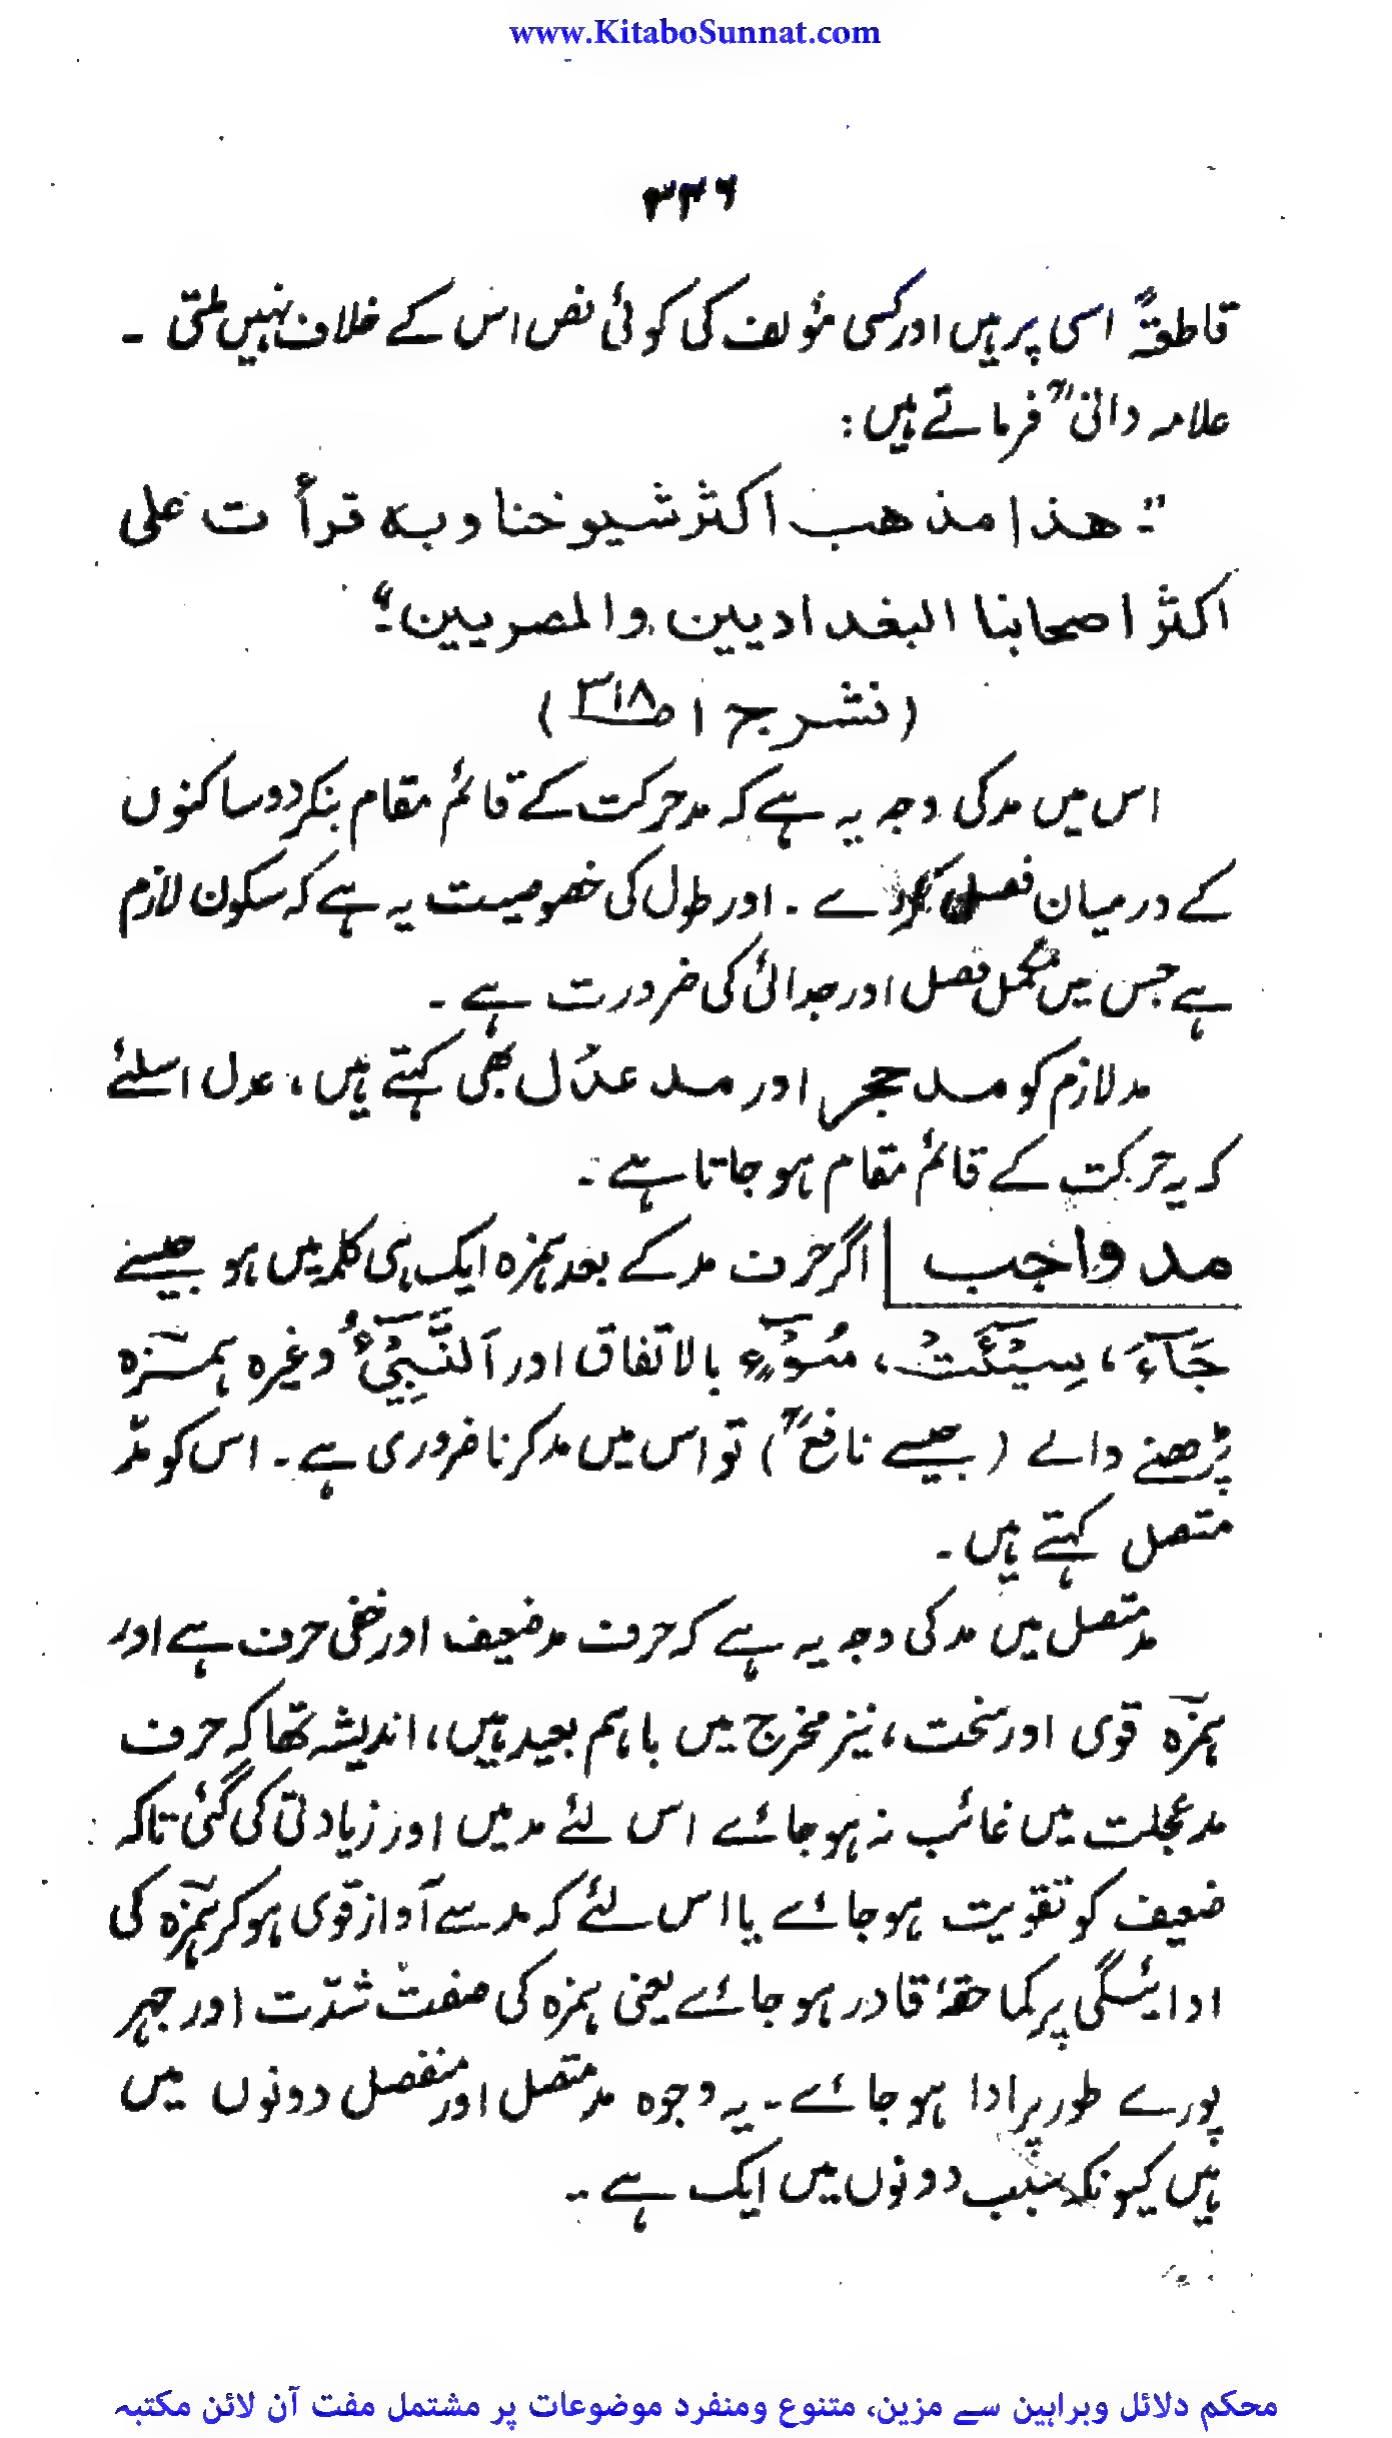 www.KitaboSunnat.com
۳۳۶
قاطبۃً اسی پر ہیں اور کسی مؤلف کی کوئی نص اس کے خلاف نہیں ملتی ۔
علامہ دانیؒ فرماتے ہیں :
"۔ هذا مذهب اكثر شيوخنا وبه قرأ ت على
اكثر اصحابنا البغداديين والمصريين۔"
(نشر ج ۱ ص۳۱۸)
اس میں مد کی وجہ یہ ہے کہ مد حرکت کے قائم مقام بنکر دو ساکنوں
کے درمیان فصل کردے ۔ اور طول کی خصوصیت یہ ہے کہ سکون لازم
ہے جس میں مکمل فصل اور جدائی کی ضرورت ہے ۔
مد لازم کو مد حجر اور مد عدل بھی کہتے ہیں ، عدل اسلئے
کہ یہ حرکت کے قائم مقام ہو جاتا ہے ۔
مد واجب | اگر حرف مد کے بعد ہمزہ ایک ہی کلمہ میں ہو جیسے
جَآءَ ، سِيْٓئَتْ ، سُوْٓءٍ بالاتفاق اور اَلنَّبِيْٓءُ وغیرہ ہمزہ
پڑھنے والے (جیسے نافعؒ) تو اس میں مد کرنا ضروری ہے ۔ اس کو مدّ
متصل کہتے ہیں ۔
مد متصل میں مد کی وجہ یہ ہے کہ حرف مد ضعیف اور خفی حرف ہے اور
ہمزہ قوی اور سخت ، نیز مخرج میں باہم بعید ہیں ، اندیشہ تھا کہ حرف
مد عجلت میں غائب نہ ہو جائے اس لئے مد میں اور زیادتی کی گئی تاکہ
ضعیف کو تقویت ہو جائے یا اس لئے کہ مد سے آواز قوی ہو کر ہمزہ کی
ادائیگی پر کما حقہٗ قادر ہو جائے یعنی ہمزہ کی صفت شدّت اور جہر
پورے طور پر ادا ہو جائے ۔ یہ وجوہ مد متصل اور منفصل دونوں میں
ہیں کیونکہ سبب دونوں میں ایک ہے ۔
محکم دلائل وبراہین سے مزین، متنوع ومنفرد موضوعات پر مشتمل مفت آن لائن مکتبہ